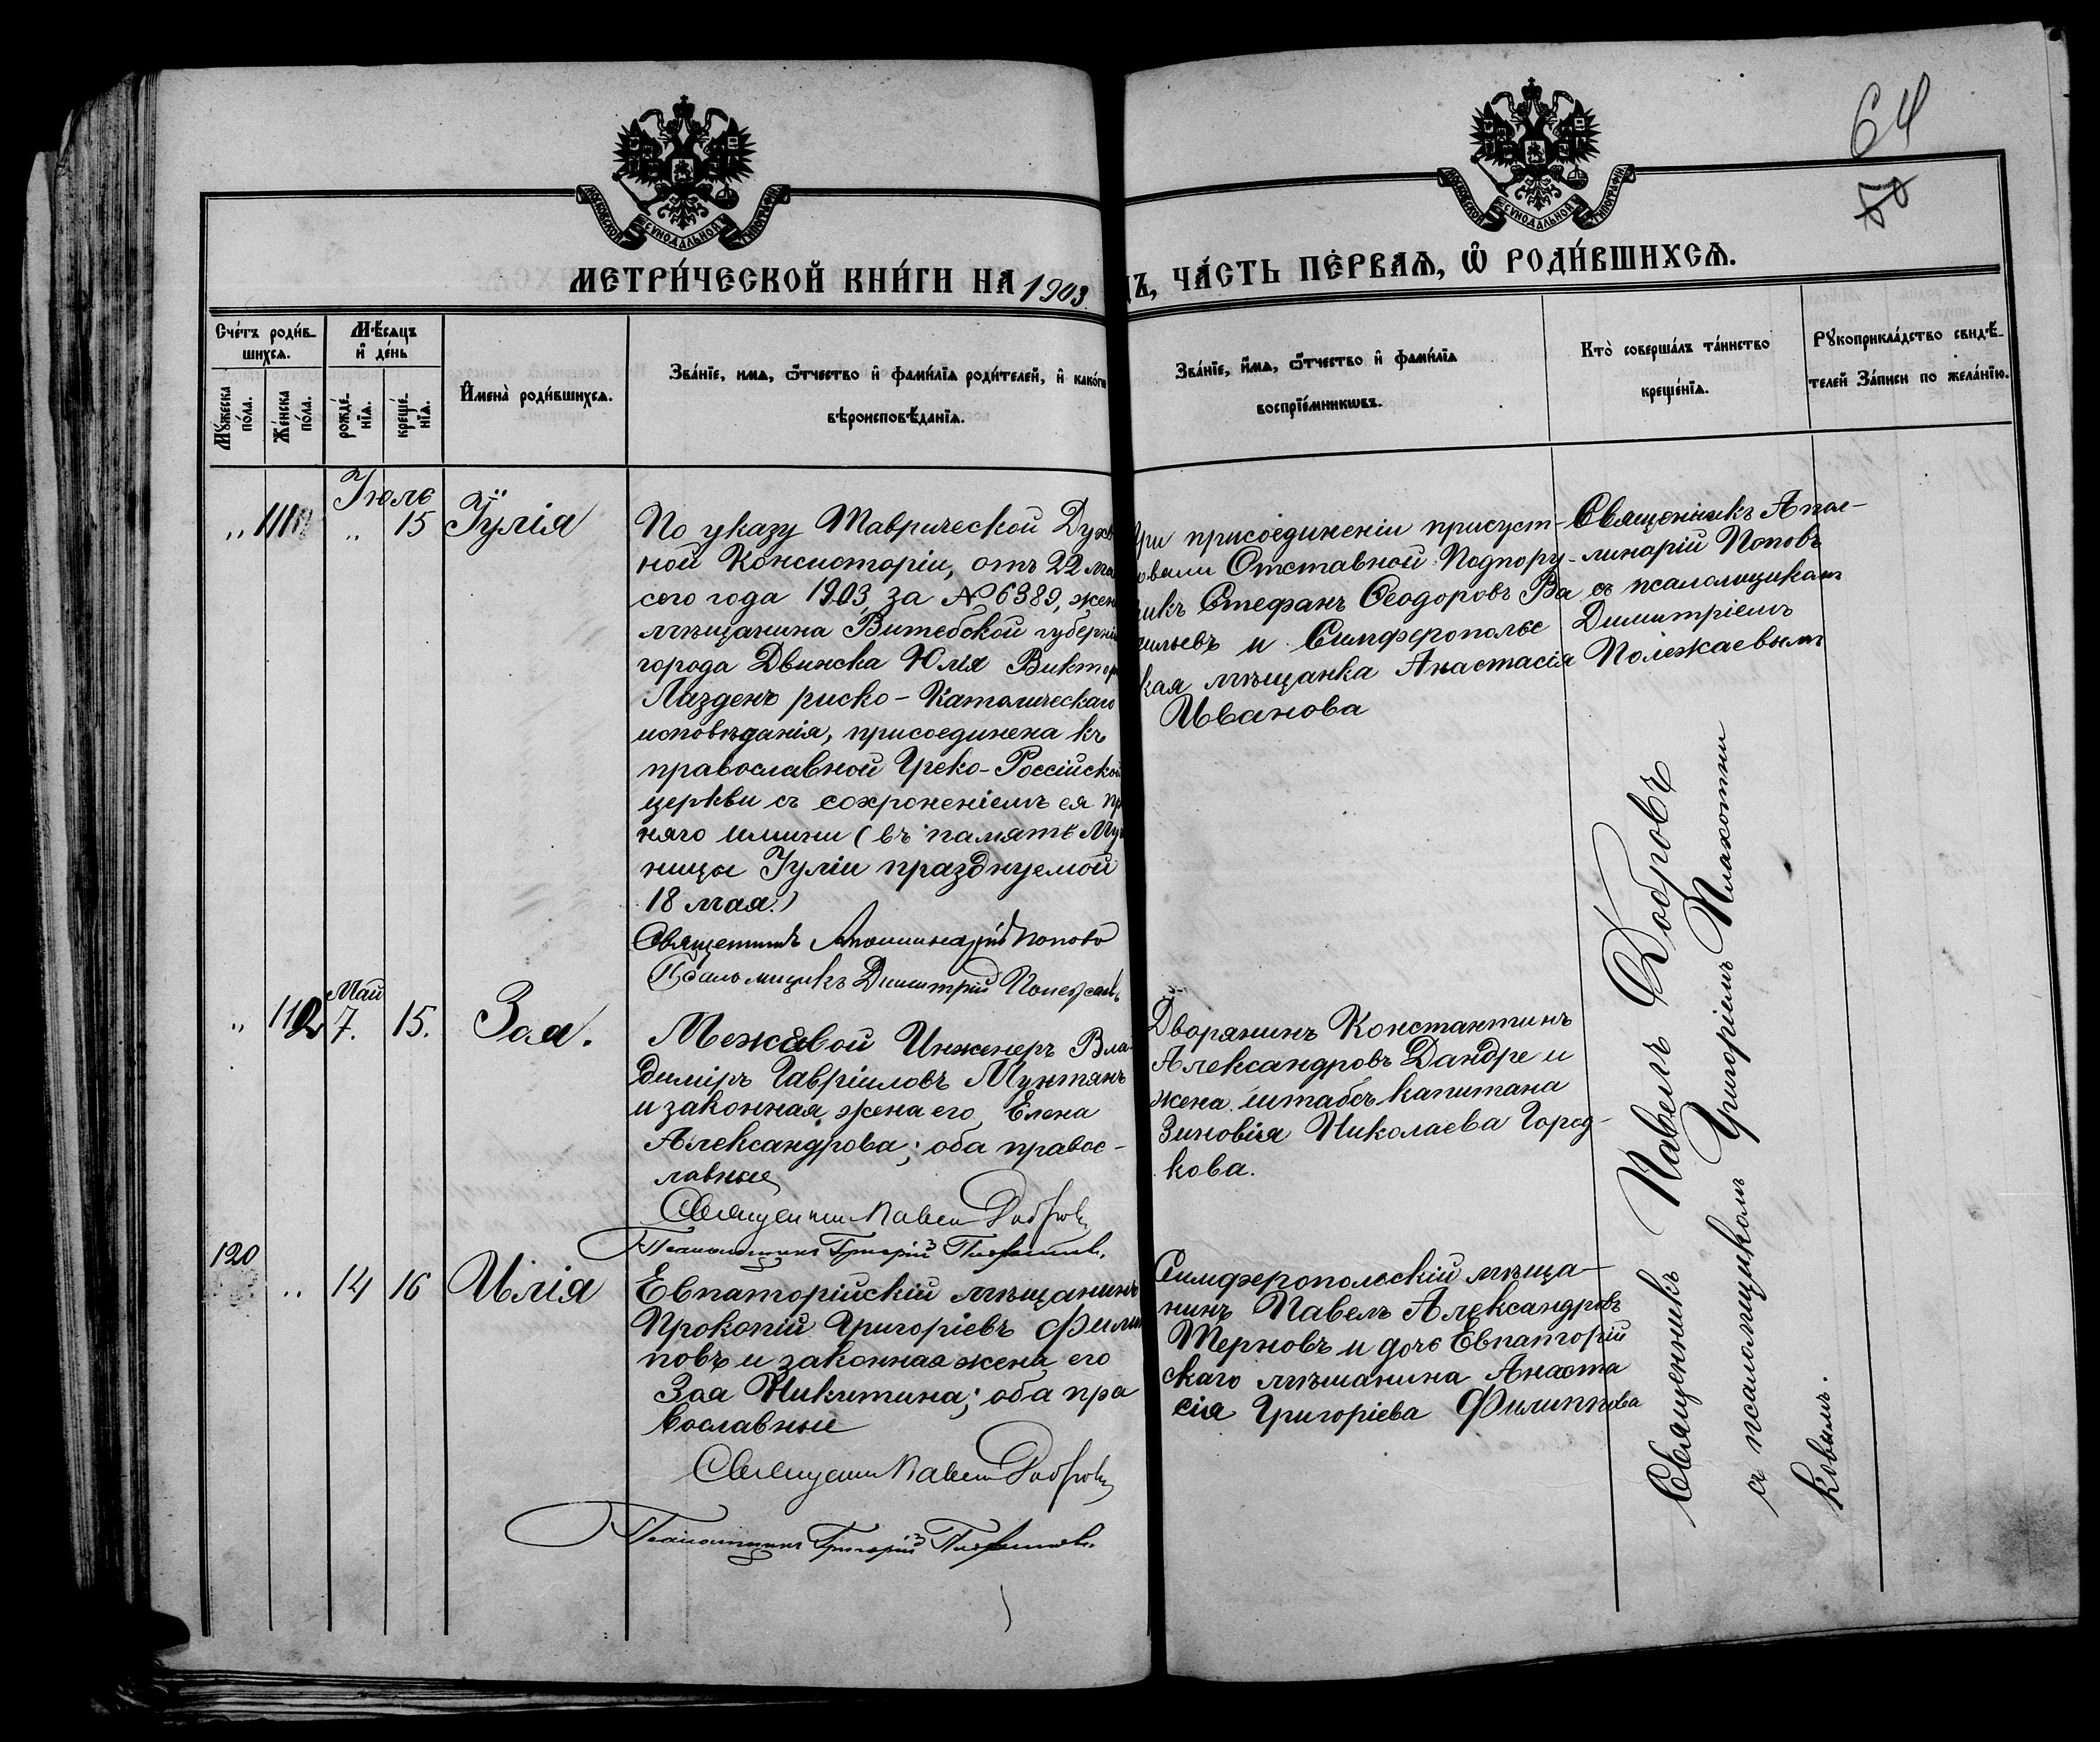 64
50
МОСКОВСКОЙ СѴНОДАЛЬНОЙ ТИПОГРАФІИ
МОСКОВСКОЙ СѴНОДАЛЬНОЙ ТИПОГРАФІИ
МЕТРИ́ЧЕСКОЙ КНИ́ГИ НА 1903
ДЪ, ЧА́СТЬ ПЕ́РВАѦ, Ѿ РОДИ́ВШИХСѦ.
Сче́тъ роди́в-
шихсѧ.
Мꙋ́жеска
по́ла.
Же́нска
по́ла.
Мѣ́сѧцъ
и҆ де́нь
рожде́-
нїѧ.
креще́-
нїѧ.
И҆мена̀ роди́вшихсѧ.
Зва́нїе, имѧ, ѻ҆́тчество и҆ фами́лїѧ роди́телей, и҆ како́гѡ
вѣроисповѣ́данїѧ.
Зва́нїе, и҆́мѧ, ѻ҆́тчество и҆ фами́лїѧ
воспрїе́мникѡвъ.
Кто̀ соверша́лъ та́инство
креще́нїѧ.
Рꙋкоприкла́дство свидѣ́-
телей За́писи по жела́нїю.
Іюль
„ 111 „ 15 Іулія
По указу Таврической Духо
ной Консисторіи, отъ 22 ма
сего года 1903, за № 6389, жен
мѣщанина Витебской губерніи
города Двинска Юлія Виктор
Лазденъ риско-Католическаго
исповѣданія, присоединена къ
православной Греко-Россійской
церкви съ сохроненіемъ ея пр
няго имини (въ память Му
ницы Іуліи празднуемой
18 мая.)
Священникъ Аполлинарій Поповъ
Псаломщикъ Димитрій Полежаевъ
При присоединеніи присуст-
вовали Отставной Подпору-
чикъ Стефанъ Ѳеодоровъ Ва
сильевъ и Симферополье
кая мѣщанка Анастасія
Иванова
Священникъ Апол-
линарій Поповъ
съ псаломщикомъ
Димитріемъ
Полежаевымъ
Май
„ 112 7. 15. Зоя.
Межевой Инженеръ Вла-
диміръ Гавріиловъ Мунтянъ
и законная жена его Елена
Александрова; оба правос-
лавные
Священникъ Павелъ Добровъ
Псаломщикъ Григорій Плахотниковъ
Дворянинъ Константинъ
Александровъ Дандре и
жена штабсъ капитана
Зиновія Николаева Город-
кова.
120 „ 14 16 Илія
Евпаторійскій мѣщанинъ
Прокопій Григоріевъ Филип
повъ и законная жена его
Зоя Никитина; оба пра
вославные
Священникъ Павелъ Добровъ
Псаломщикъ Григорій Плахотниковъ
Симферопольскій мѣща-
нинъ Павелъ Александровъ
Терновъ и дочь Евпаторій
скаго мѣщанина Анаста
сія Григоріева Филиппова
Священникъ Павелъ Добровъ
съ псаломщикомъ Григоріемъ Плахотни
ковымъ.